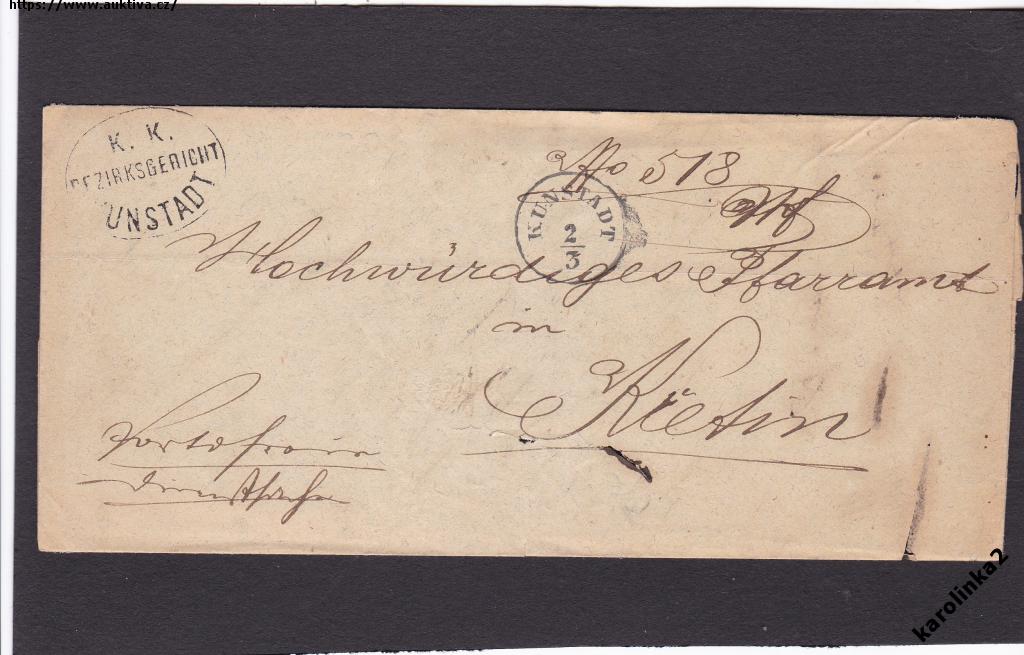 https://www.auktiva.cz/
K. K.
BEZIRKSGERICHT
UNSTADT
No 518
KUNSTADT
2
3
Hochwürdiges Pfarramt
in
Křetin
Portofreie
Dienstsache
karolinka2